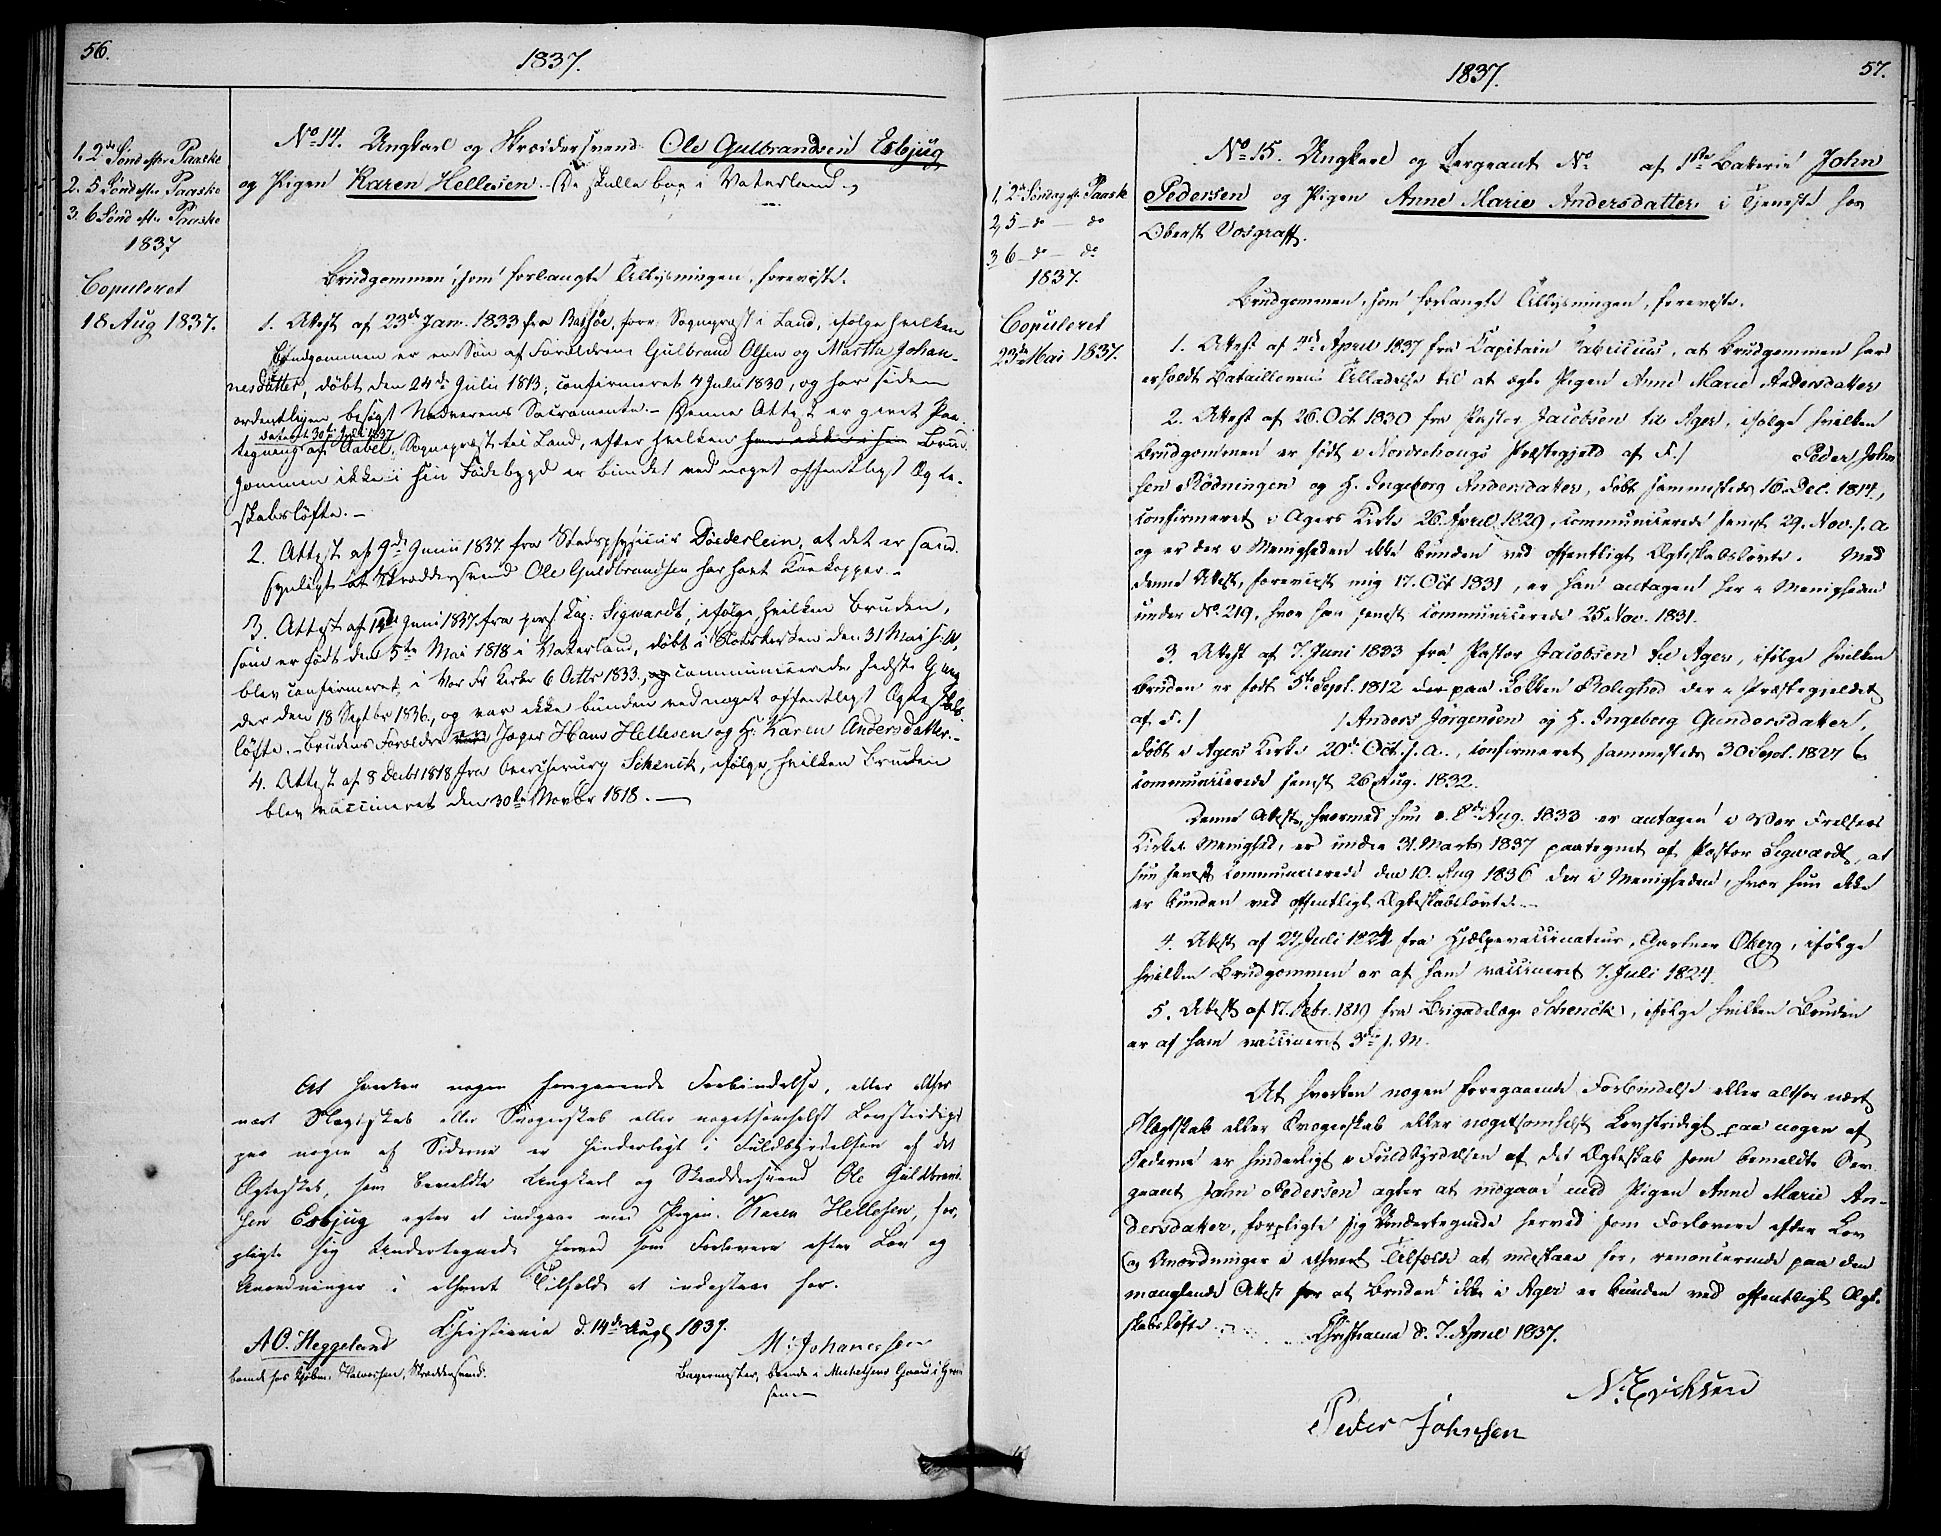 56.
1837.
1. 2de Sønd efter Paaske
2. 5 Sønd efter Paaske
3. 6 Sønd efter Paaske
1837
Copuleret
18 Aug 1837.
No 14. Ungkarl og Skrædersvend Ole Gulbrandsen Esbjug
og Pigen Karen Hellesen. De skulle boe i Vaterland.
Brudgommen, som forlangte Tillysningen, foreviste.
1. Attest af 23de Jan. 1833 fra Bassøe, forr. Sognepræst i Land, ifølge hvilken
Brudgommen er en Søn af Forældrene Gulbrand Olsen og Martha Johan-
nesdatter, døbt den 24de Julii 1813, confirmeret 4 Julii 1830, og har siden
ordentligen besøgt Nadverens Sacramente. – Denne Attest er givet Paa-
dateret 30te Juli 1837
tegning af Aabel, Sognepræst til Land, efter hvilken Brud-
gommen ikke i sin Fødebygd er bundet ved noget offentligt Ægte-
skabsløfte. –
2. Attest af 9de Junii 1837 fra Stadsphysicus Døderlein, at det er sand-
synligt at Skræddersvend Ole Guldbrandsen har havt Koekopper. –
3. Attest af 12te Juni 1837 fra pers. Kap: Sigwardt, ifølge hvilken Bruden,
som er født den 5te Mai 1818 i Vaterland, døbt i Slotskirken den 31 Mai s: A,
blev confirmeret i Vor Fr Kirke 6 Octbr 1833, og communicerede sidste Gang
der den 18 Septbr 1836, og var ikke bunden ved noget offentligt Ægteskabs-
løfte. – Brudens Forældre Jæger Hans Hellesen og H: Karen Andersdatter. –
4. Attest af 8 Decbr 1818 fra Overchirurg Schenck, ifølge hvilken Bruden
blev vaccineret den 30te Novbr 1818. –
At hverken nogen foregaaende Forbindelse, eller altfor
nært Slægtskab eller Svogerskab eller nogetsomhelst Lovstridigt
paa nogen af Siderne er hinderligt i Fuldbyrdelsen af det
Ægteskab, som bemeldte Ungkarl og Skræddersvend Ole Guldbrand-
sen Esbjug agter at indgaae med Pigen Karen Hellesen, for-
pligte sig Undertegnede herved som Forlovere efter Lov og
Anordninger i ethvert Tilfælde at indestaae for.
Christiania d. 14de Augt 1837.
A O. Heggeland
boende hos Skræddersvend.
M: Johannesen
Bagermester, boende i Michelsens Gaard i Græn
sen –
57.
1837.
1, 2de Søndag eft. Paaske
2, 5 – do – do
3 6 – do – do
1837.
Copuleret
23de Mai 1837.
No 15. Ungkarl og Sergeant No af 1ste Batterie John
Pedersen og Pigen Anne Marie Andersdatter i Tjeneste hos
Oberst Vosgraff.
Brudgommen, som forlangte Tillysningen, foreviste.
1. Attest af 4de April 1837 fra Capitain Fabricius, at Brudgommen har
erholdt Bataillonens Tilladelse til at ægte Pigen Anne Marie Andersdatter
2. Attest af 26. Oct 1830 fra Pastor Jacobsen til Ager, ifølge hvilken
Brudgommen er født i Nordrehougs Præstegjeld af F./ Peder John
sen Rødningen og H. Ingeborg Andersdatter, døbt sammesteds 16. Dec. 1814,
confirmeret i Agers Kirke 26. April 1829, communicerede senest 29. Nov. s. A.
og er der i Menigheden ikke bunden ved offentligt Ægteskabsløvte. Med
denne Attest, foreviist mig 17. Oct 1831, er han antagen her i Menigheden
under No. 219, hvor han senest communicerede 25 Nov. 1831.
3. Attest af 7. Juni 1833 fra Pastor Jacobsen til Ager, ifølge hvilken
Bruden er født 5te Sept. 1812 paa Løkken Rolighed der i Præstegjeldet
af F./ /Anders Jørgensen og H. Ingeborg Gundersdatter,
døbt i Agers Kirke 20de Oct. s. A., confirmeret sammesteds 30 Sept. 1827 &
communicerede senest 26 Aug. 1832.
Denne Attest, hvormed hun d. 8de Aug. 1833 er antagen i Vor Frelsers
Kirkes Menighed, er under 31. Marts 1837 paategnet af Pastor Sigwardt, at
hun senest communicerede den 10. Aug 1836 der i Menigheden, hvor hun ikke
er bunden ved offentligt Ægteskabsløvte. –
4. Attest af 27 Juli 1824 fra Hjelpevaccinateur, Gartner Oberg, ifølge
hvilken Brudgommen er af ham vaccineret 7. Juli 1824.
5. Attest af 17. Febr. 1819 fra Brigadelæge Schenck, ifølge hvilken Bruden
er af ham vaccineret 3die s. M.
At hverken nogen foregaaende Forbindelse eller altfor nært
Slægtskab eller Svogerskab eller nogetsomhelst Lovstridigt paa nogen af
Siderne er hinderligt i Fuldbyrdelsen af det Ægteskab som bemeldte Ser-
geant John Pedersen agter at indgaae med Pigen Anne Marie An-
dersdatter, forpligte sig Undertegnede herved som Forlovere efter Lov
og Anordninger i ethvert Tilfælde at indestaae for, renoncerende paa den
manglende Attest for at Bruden ikke i Ager er bunden ved offentligt Ægte-
skabsløfte. Christiania d. 7. April 1837.
N. Erichsen
Peder Johnsen